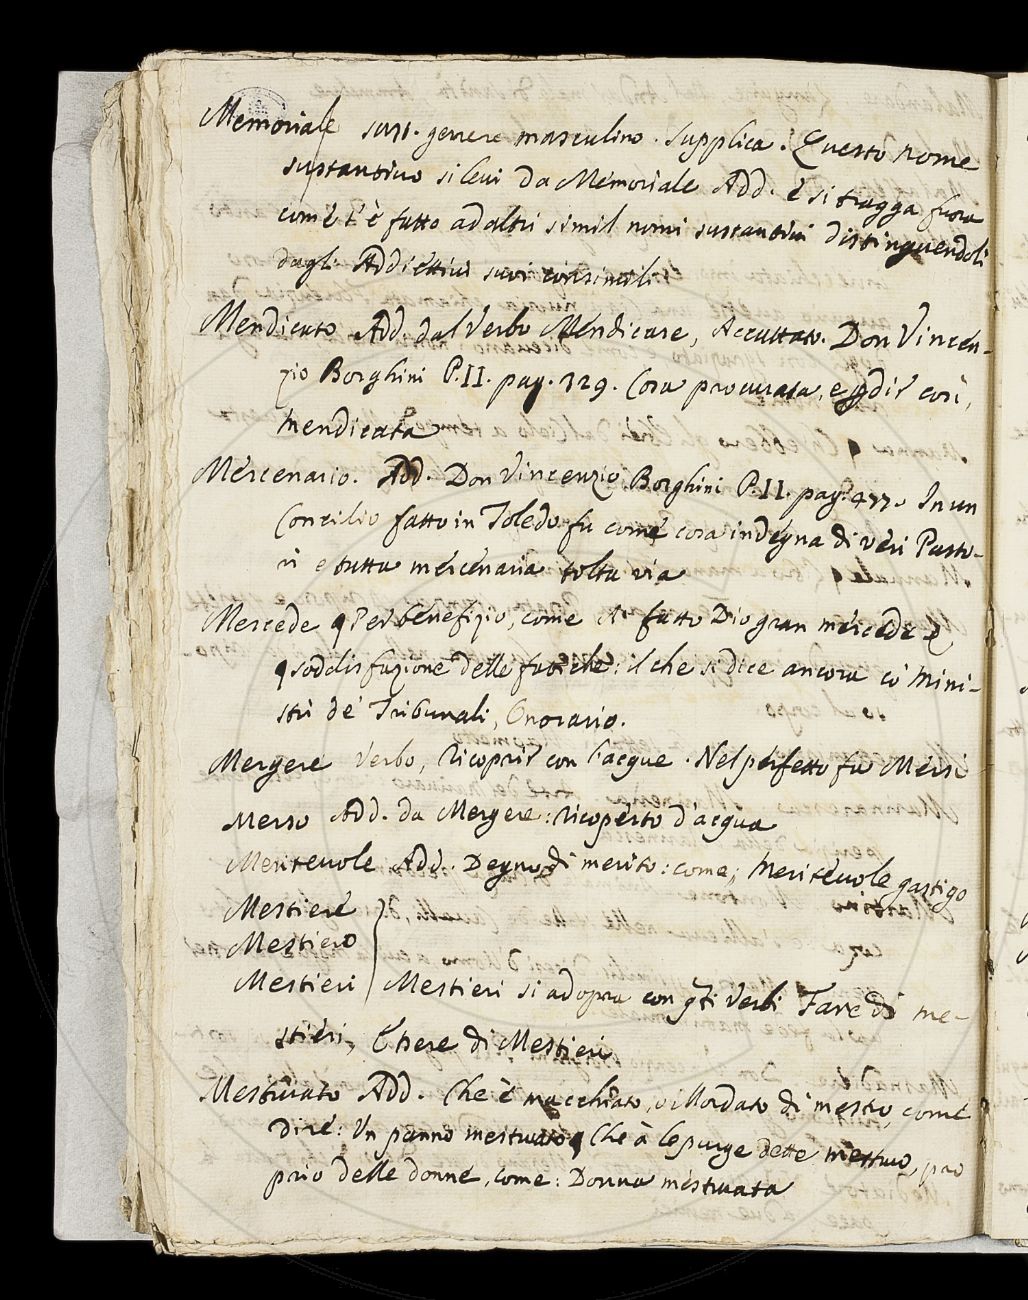 Memoriale sust. genere masculino. Supplica. Questo nome
sustantivo si levi da Memoriale Add. e si tragga fuora
com'è s'è fatto ad altri simil nomi sustantivi distinguendoli
dagli Addiettivi suoi consimili
Mendicato Add. dal Verbo Mendicare, Accattato. Don Vincen-
zio Borghini P.II. pag. 329. Cosa procurata, e p dir così,
mendicata
Mercenario. Add. Don Vincenzio Borghini P.II. pag. 477. In un
Concilio fatto in Toledo fu come cosa indegna di veri Pasto-
ri e tutta mercenaria tolta via
Mercede § Per benefizio, come A fatto Dio gran mercede
§ soddisfazione delle fatiche: il che si dice ancora co' mini-
stri de' Tribunali, Onorario.
Mergere Verbo, Ricoprir con l'acque. Nel perfetto fu Mersi
Merso Add. da Mergere: ricoperto d'acqua
Meritevole Add. Degno di merito: come, meritevole gastigo
Mestiere
Mestiero
Mestieri Mestieri si adopra con qti Verbi Fare di me-
stieri, Essere di Mestieri
Mestruato Add. Che è macchiato, o illordato di mestruo, come
dire: Un panno mestruato § Che à le purge dette mestruo, pro
prio delle donne, come: Donna mestruata